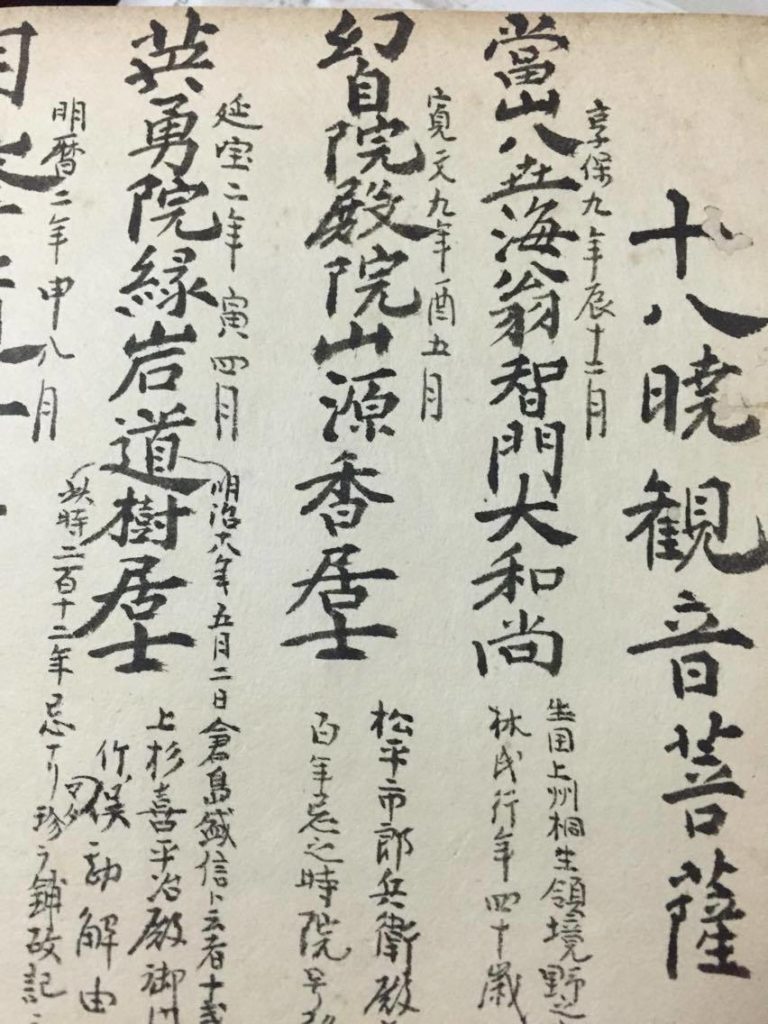 十八暁観音菩薩
享保九年辰十二月
當山八世海翁智門大和尚
生国上州桐生領境野之
林氏行年四十歳
寛文九年酉五月
幻自院殿院山源香居士
松平市郎兵衛殿
百年忌之時院号
延宝二年寅四月
英勇院縁岩道樹居士
明治六年五月二日倉島
上杉喜平治殿御
竹俣 勘解由
此時二百十二年忌ナリ
明暦二年申八月